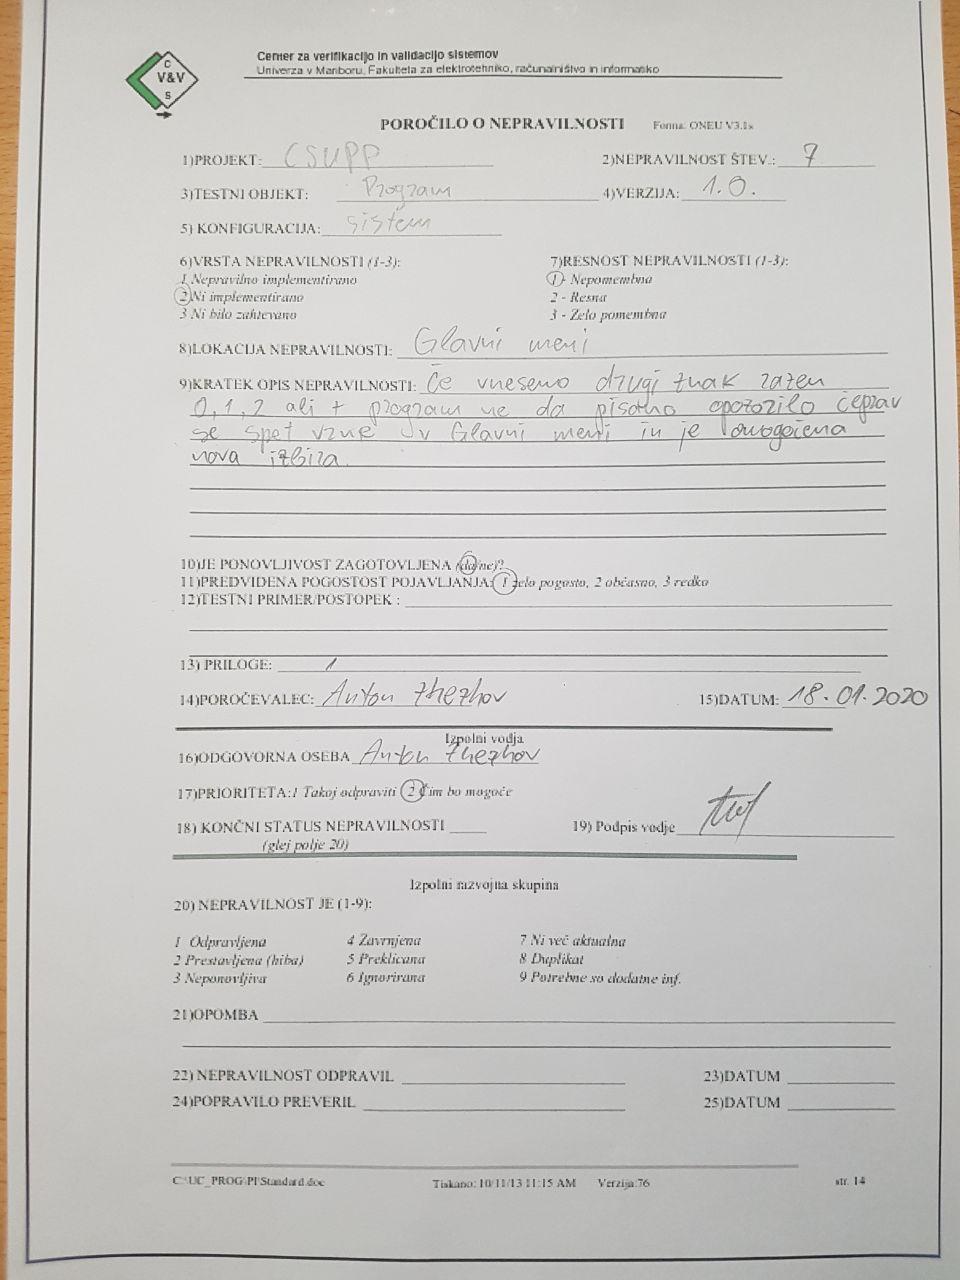 C
V&V
S
Center za verifikacijo in validacijo sistemov
Univerza v Mariboru, Fakulteta za elektrotehniko, računalništvo in informatiko
POROČILO O NEPRAVILNOSTI Forma: ONEU V3.1s
1)PROJEKT: CSUPP 2)NEPRAVILNOST ŠTEV.: 7
3)TESTNI OBJEKT: Program 4)VERZIJA: 1.0.
5) KONFIGURACIJA: sistem
6)VRSTA NEPRAVILNOSTI (1-3): 7)RESNOST NEPRAVILNOSTI (1-3):
1 Nepravilno implementirano 1 - Nepomembna
2 Ni implementirano 2 - Resna
3 Ni bilo zahtevano 3 - Zelo pomembna
8)LOKACIJA NEPRAVILNOSTI: Glavni meni
9)KRATEK OPIS NEPRAVILNOSTI: Če vnesemo drugi znak razen
0,1,2 ali + program ne da pisno opozorilo čeprav
se spet vrne v Glavni meni in je omogočena
nova izbira.
10)JE PONOVLJIVOST ZAGOTOVLJENA (da/ne)?
11)PREDVIDENA POGOSTOST POJAVLJANJA: 1 zelo pogosto, 2 občasno, 3 redko
12)TESTNI PRIMER/POSTOPEK :
13) PRILOGE: 1
14)POROČEVALEC: Anton 15)DATUM: 18.01.2020
Izpolni vodja
16)ODGOVORNA OSEBA Anton
17)PRIORITETA:1 Takoj odpraviti 2 Čim bo mogoče
18) KONČNI STATUS NEPRAVILNOSTI 19) Podpis vodje
(glej polje 20)
Izpolni razvojna skupina
20) NEPRAVILNOST JE (1-9):
1 Odpravljena 4 Zavrnjena 7 Ni več aktualna
2 Prestavljena (hiba) 5 Preklicana 8 Duplikat
3 Neponovljiva 6 Ignorirana 9 Potrebne so dodatne inf.
21)OPOMBA
22) NEPRAVILNOST ODPRAVIL 23)DATUM
24)POPRAVILO PREVERIL 25)DATUM
C:\UC_PROG\PI\Standard.doc Tiskano: 10/11/13 11:15 AM Verzija:76 str. 14